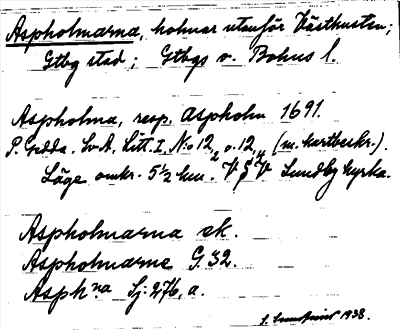 Aspholmarna, holmar utanför Västkusten;
Gtbg stad; Gtbgs o. Bohus l.
Aspholma, resp. Aspholm 1691.
P. Gedda. Sv A. Litt. I. No 12, o. 12, (m. kartbeskr.).
Läge omkr. 5½ km. V § V Lundby kyrka.
Aspholmarna ek.
Aspholmarne G. 32.
Asph na Sj: 276, a.
1938.